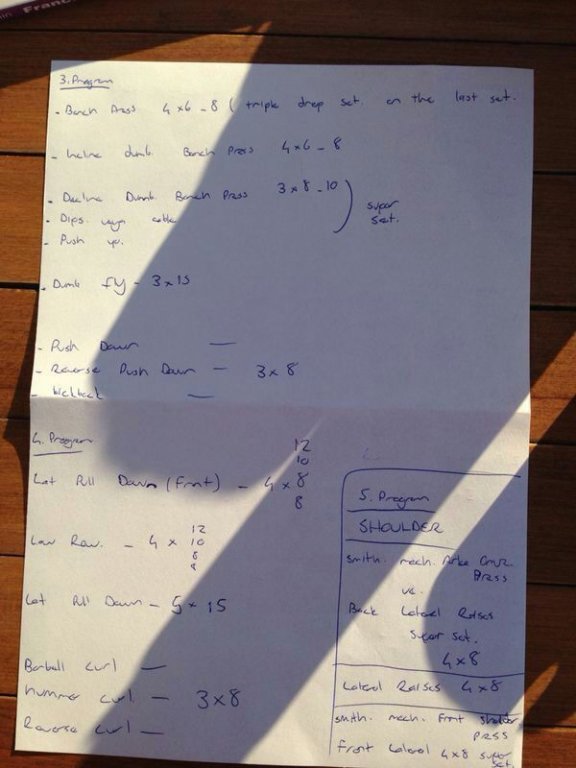 Franc
3. Program
- Bench Press 4x6-8 (triple drop set. on the last set.
- Incline dumb. Bench Press 4x6-8
- Decline Dumb Bench Press 3x8-10
- Dips veya
- Push up.
super set.
- Dumb fly - 3x15
- Push Down —
- Reverse Push Down — 3x8
- kickback —
4. Program
Lat Pull Down (front) - 4x 12 10 8 8
Low Row. - 4x 12 10 8 8
Lat Pull Down - 5x15
Barbell curl —
hummer curl — 3x8
Reverse curl —
5. Program
SHOULDER
smith. mech. Arka
Press
ve.
Back Lateral Raises
super set.
4x8
Lateral Raises 4x8
smith. mech. Front sholder
press
front Lateral 4x8 super
set.